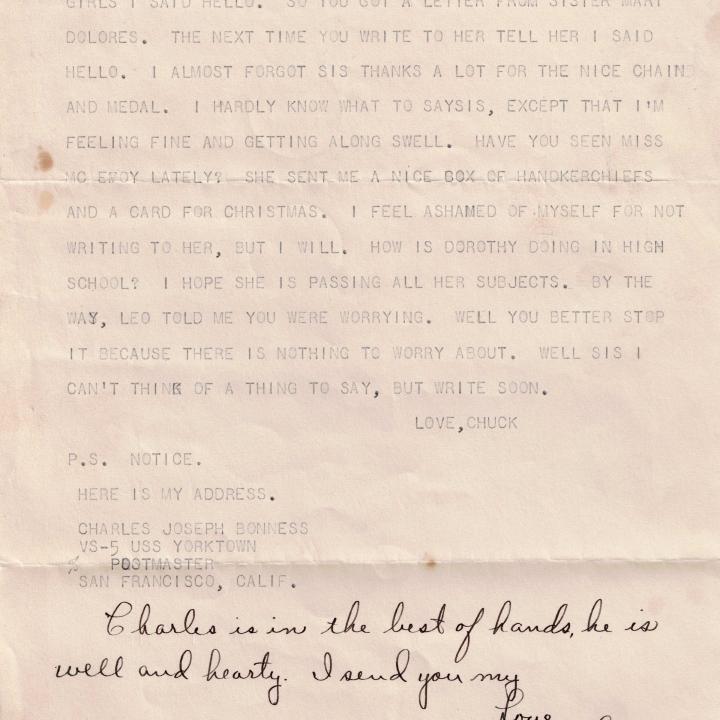 GIRLS I SAID HELLO.  SO YOU GOT A LETTER FROM SISTER MARY
DOLORES.  THE NEXT TIME YOU WRITE TO HER TELL HER I SAID
HELLO.  I ALMOST FORGOT SIS THANKS A LOT FOR THE NICE CHAIN
AND MEDAL.  I HARDLY KNOW WHAT TO SAYSIS, EXCEPT THAT I'M
FEELING FINE AND GETTING ALONG SWELL.  HAVE YOU SEEN MISS
MC EFOY LATELY?  SHE SENT ME A NICE BOX OF HANDKERCHIEFS
AND A CARD FOR CHRISTMAS.  I FEEL ASHAMED OF MYSELF FOR NOT
WRITING TO HER, BUT I WILL.  HOW IS DOROTHY DOING IN HIGH
SCHOOL?  I HOPE SHE IS PASSING ALL HER SUBJECTS.  BY THE
WAY, LEO TOLD ME YOU WERE WORRYING.  WELL YOU BETTER STOP
IT BECAUSE THERE IS NOTHING TO WORRY ABOUT.  WELL SIS I
CAN'T THINK OF A THING TO SAY, BUT WRITE SOON.
LOVE,CHUCK
P.S.  NOTICE.
HERE IS MY ADDRESS.
CHARLES JOSEPH BONNESS
VS-5 USS YORKTOWN
% POSTMASTER
SAN FRANCISCO, CALIF.
Charles is in the best of hands, he is
well and hearty. I send you my
Love